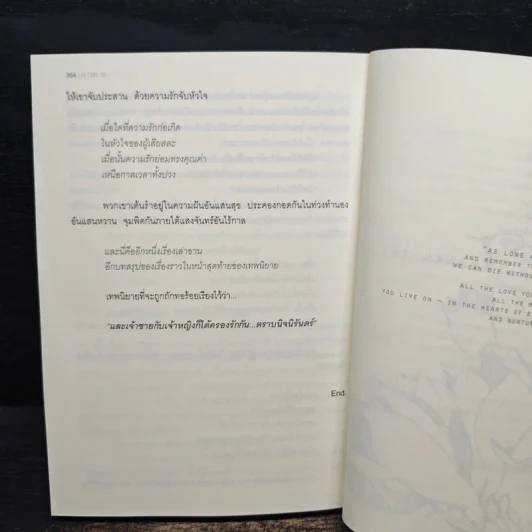 304
ให้เขาจับประสาน ด้วยความรักจับหัวใจ
เมื่อใดที่ความรักก่อเกิด
ในหัวใจของผู้เสียสละ
เมื่อนั้นความรักย่อมทรงคุณค่า
เหนือกาลเวลาทั้งปวง
พวกเขาเต้นรำอยู่ในความฝันอันแสนสุข ประคองกอดกันในท่วงทำนอง
อันแสนหวาน จุมพิตกันภายใต้แสงจันทร์อันไร้กาล
และนี่คืออีกหนึ่งเรื่องเล่าขาน
อีกบทสรุปของเรื่องราวในหน้าสุดท้ายของเทพนิยาย
เทพนิยายที่จะถูกถักทอร้อยเรียงไว้ว่า...
"และเจ้าชายกับเจ้าหญิงก็ได้ครองรักกัน...ตราบนิจนิรันดร์"
End.
"AS LONG A
AND REMEMBER T
WE CAN DIE WITHO
ALL THE LOVE YO
ALL THE M
YOU LIVE ON — IN THE HEARTS OF E
AND NURTU